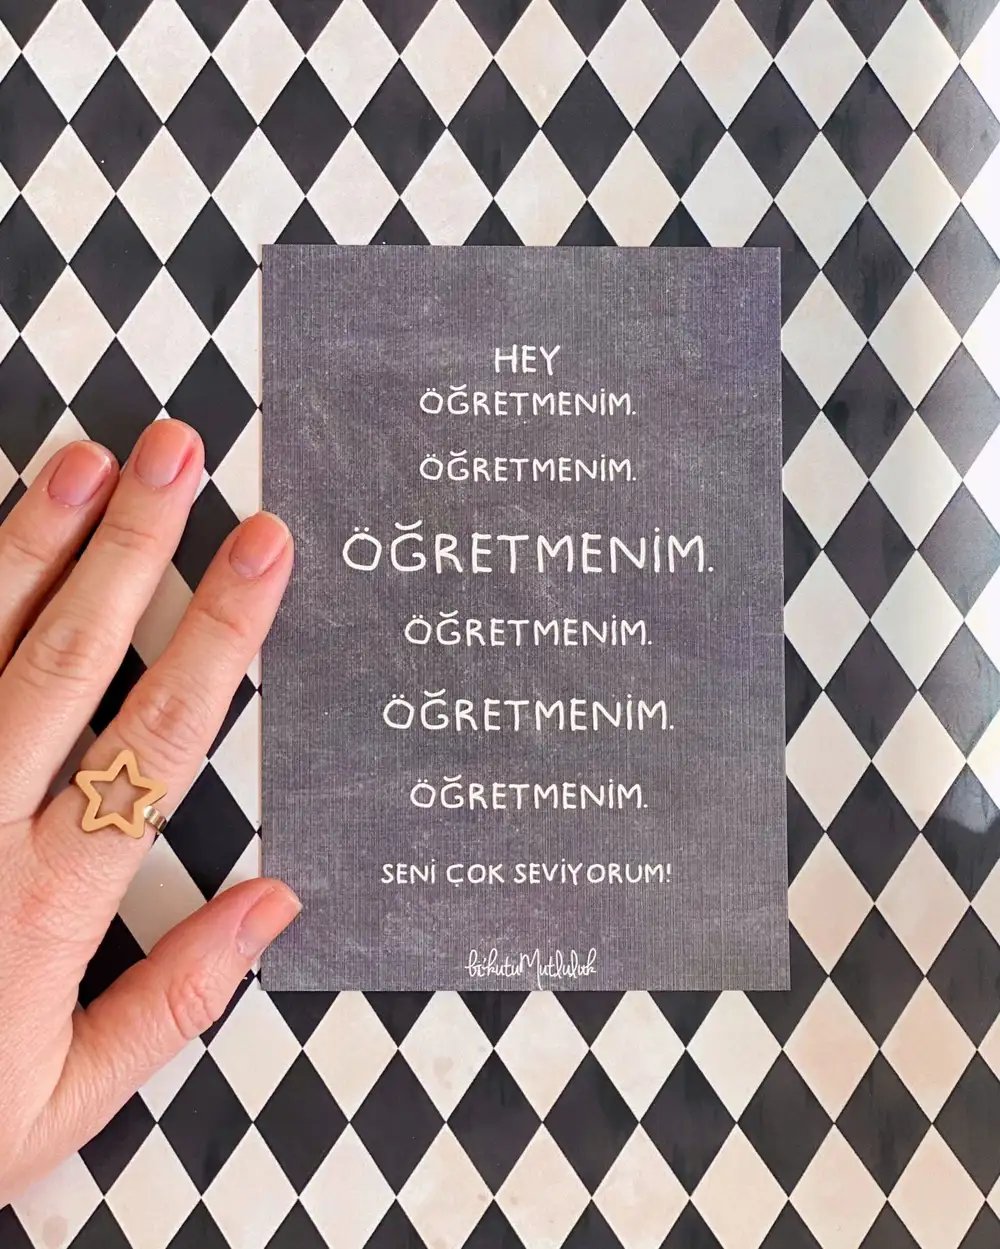 HEY
ÖĞRETMENİM.
ÖĞRETMENİM.
ÖĞRETMENİM.
ÖĞRETMENİM.
ÖĞRETMENİM.
ÖĞRETMENİM.
SENİ ÇOK SEVİYORUM!
bi'kutuMutluluk